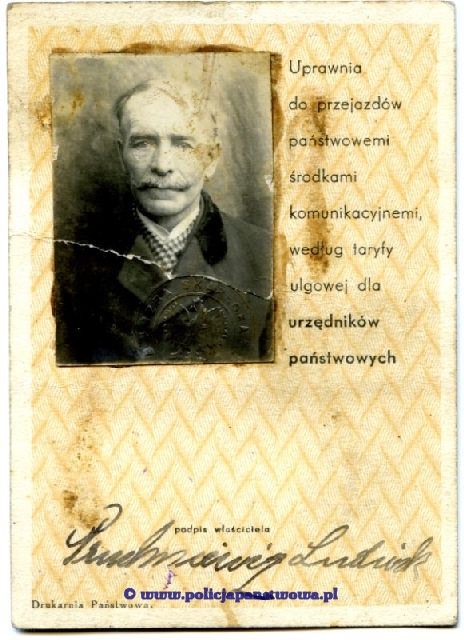 Uprawnia
do przejazdów
państwowemi
środkami
komunikacyjnemi,
według taryfy
ulgowej dla
urzędników
państwowych
podpis właściciela
Ludwik
© www.policjapanstwowa.pl
Drukarnia Państwowa.